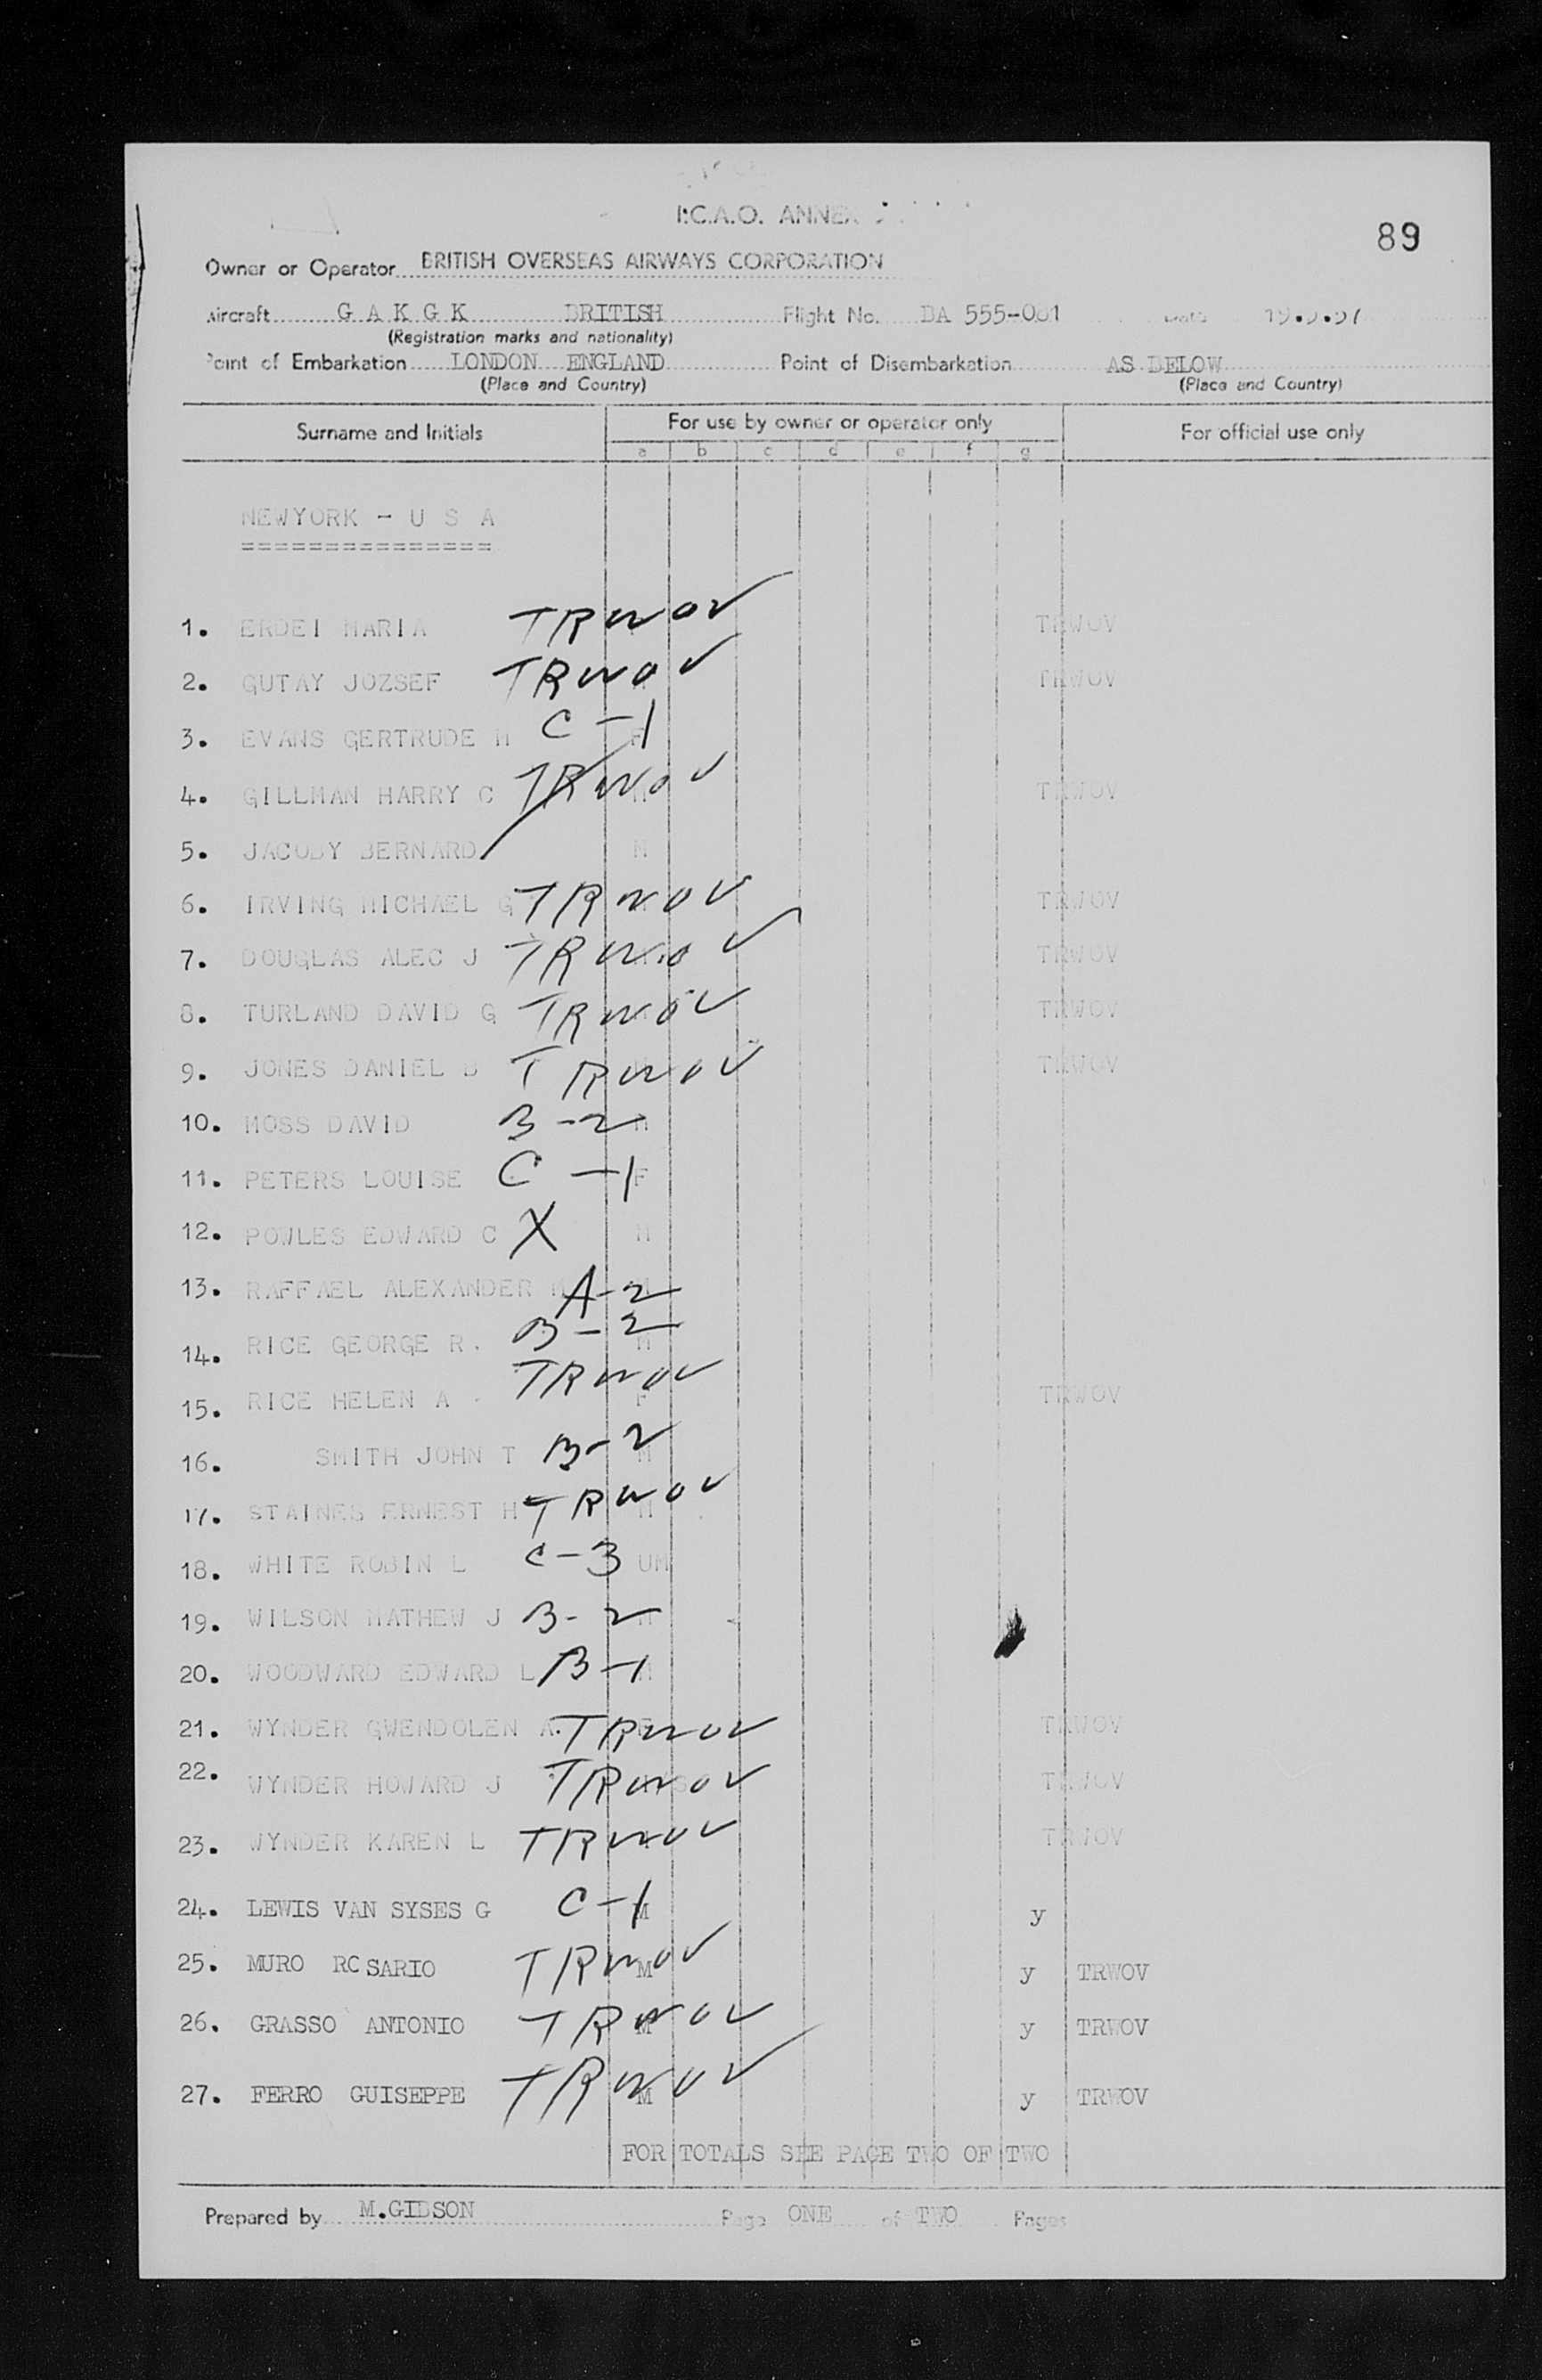 I.C.A.O. ANNEX
89
Owner or Operator BRITISH OVERSEAS AIRWAYS CORPORATION
Aircraft G A K G K BRITISH Flight No. BA 555-081 Date
(Registration marks and nationality)
Point of Embarkation LONDON ENGLAND Point of Disembarkation AS BELOW
(Place and Country) (Place and Country)
Surname and Initials For use by owner or operator only For official use only
a b c d e f g
NEWYORK - U S A
===============
1. ERDEI MARIA TRWOV TRWOV
2. GUTAY JOZSEF TRWOV TRWOV
3. EVANS GERTRUDE M C-1 F
4. GILLMAN HARRY C TRWOV M TRWOV
5. JACOBY BERNARD M
6. IRVING MICHAEL G TRWOV TRWOV
7. DOUGLAS ALEC J TRWOV TRWOV
8. TURLAND DAVID G TRWOV TRWOV
9. JONES DANIEL B TRWOV TRWOV
10. MOSS DAVID B-2 M
11. PETERS LOUISE C-1 F
12. POWLES EDWARD C X M
13. RAFFAEL ALEXANDER A-2 M
14. RICE GEORGE R. B-2 M
15. RICE HELEN A TRWOV F TRWOV
16. SMITH JOHN T B-2 M
17. STAINES ERNEST H TRWOV M
18. WHITE ROBIN L C-3 UM
19. WILSON MATHEW J B-2 M
20. WOODWARD EDWARD L B-1 M
21. WYNDER GWENDOLEN A. TRWOV F TRWOV
22. WYNDER HOWARD J TRWOV TRWOV
23. WYNDER KAREN L TRWOV TRWOV
24. LEWIS VAN SYSES G C-1 M y
25. MURO ROSARIO TRWOV M y TRWOV
26. GRASSO ANTONIO TRWOV M y TRWOV
27. FERRO GUISEPPE TRWOV M y TRWOV
FOR TOTALS SEE PAGE TWO OF TWO
Prepared by M.GIBSON Page ONE of TWO Pages